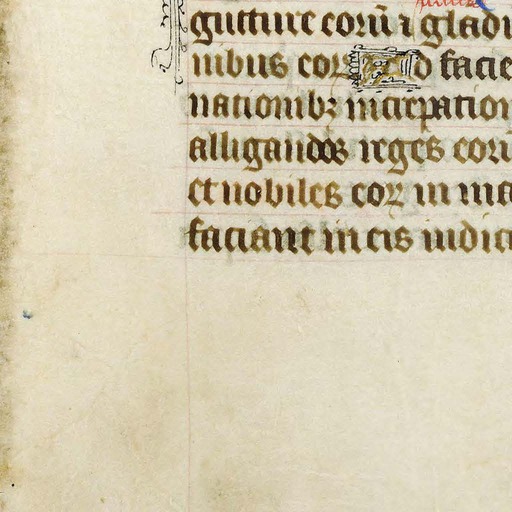 gutture eorū ⁊ gladi
nibus eoꝝ Ad facie
nationibꝫ increpation
alligandos reges eorū
et nobiles eoꝝ in ma
faciant in eis iudici